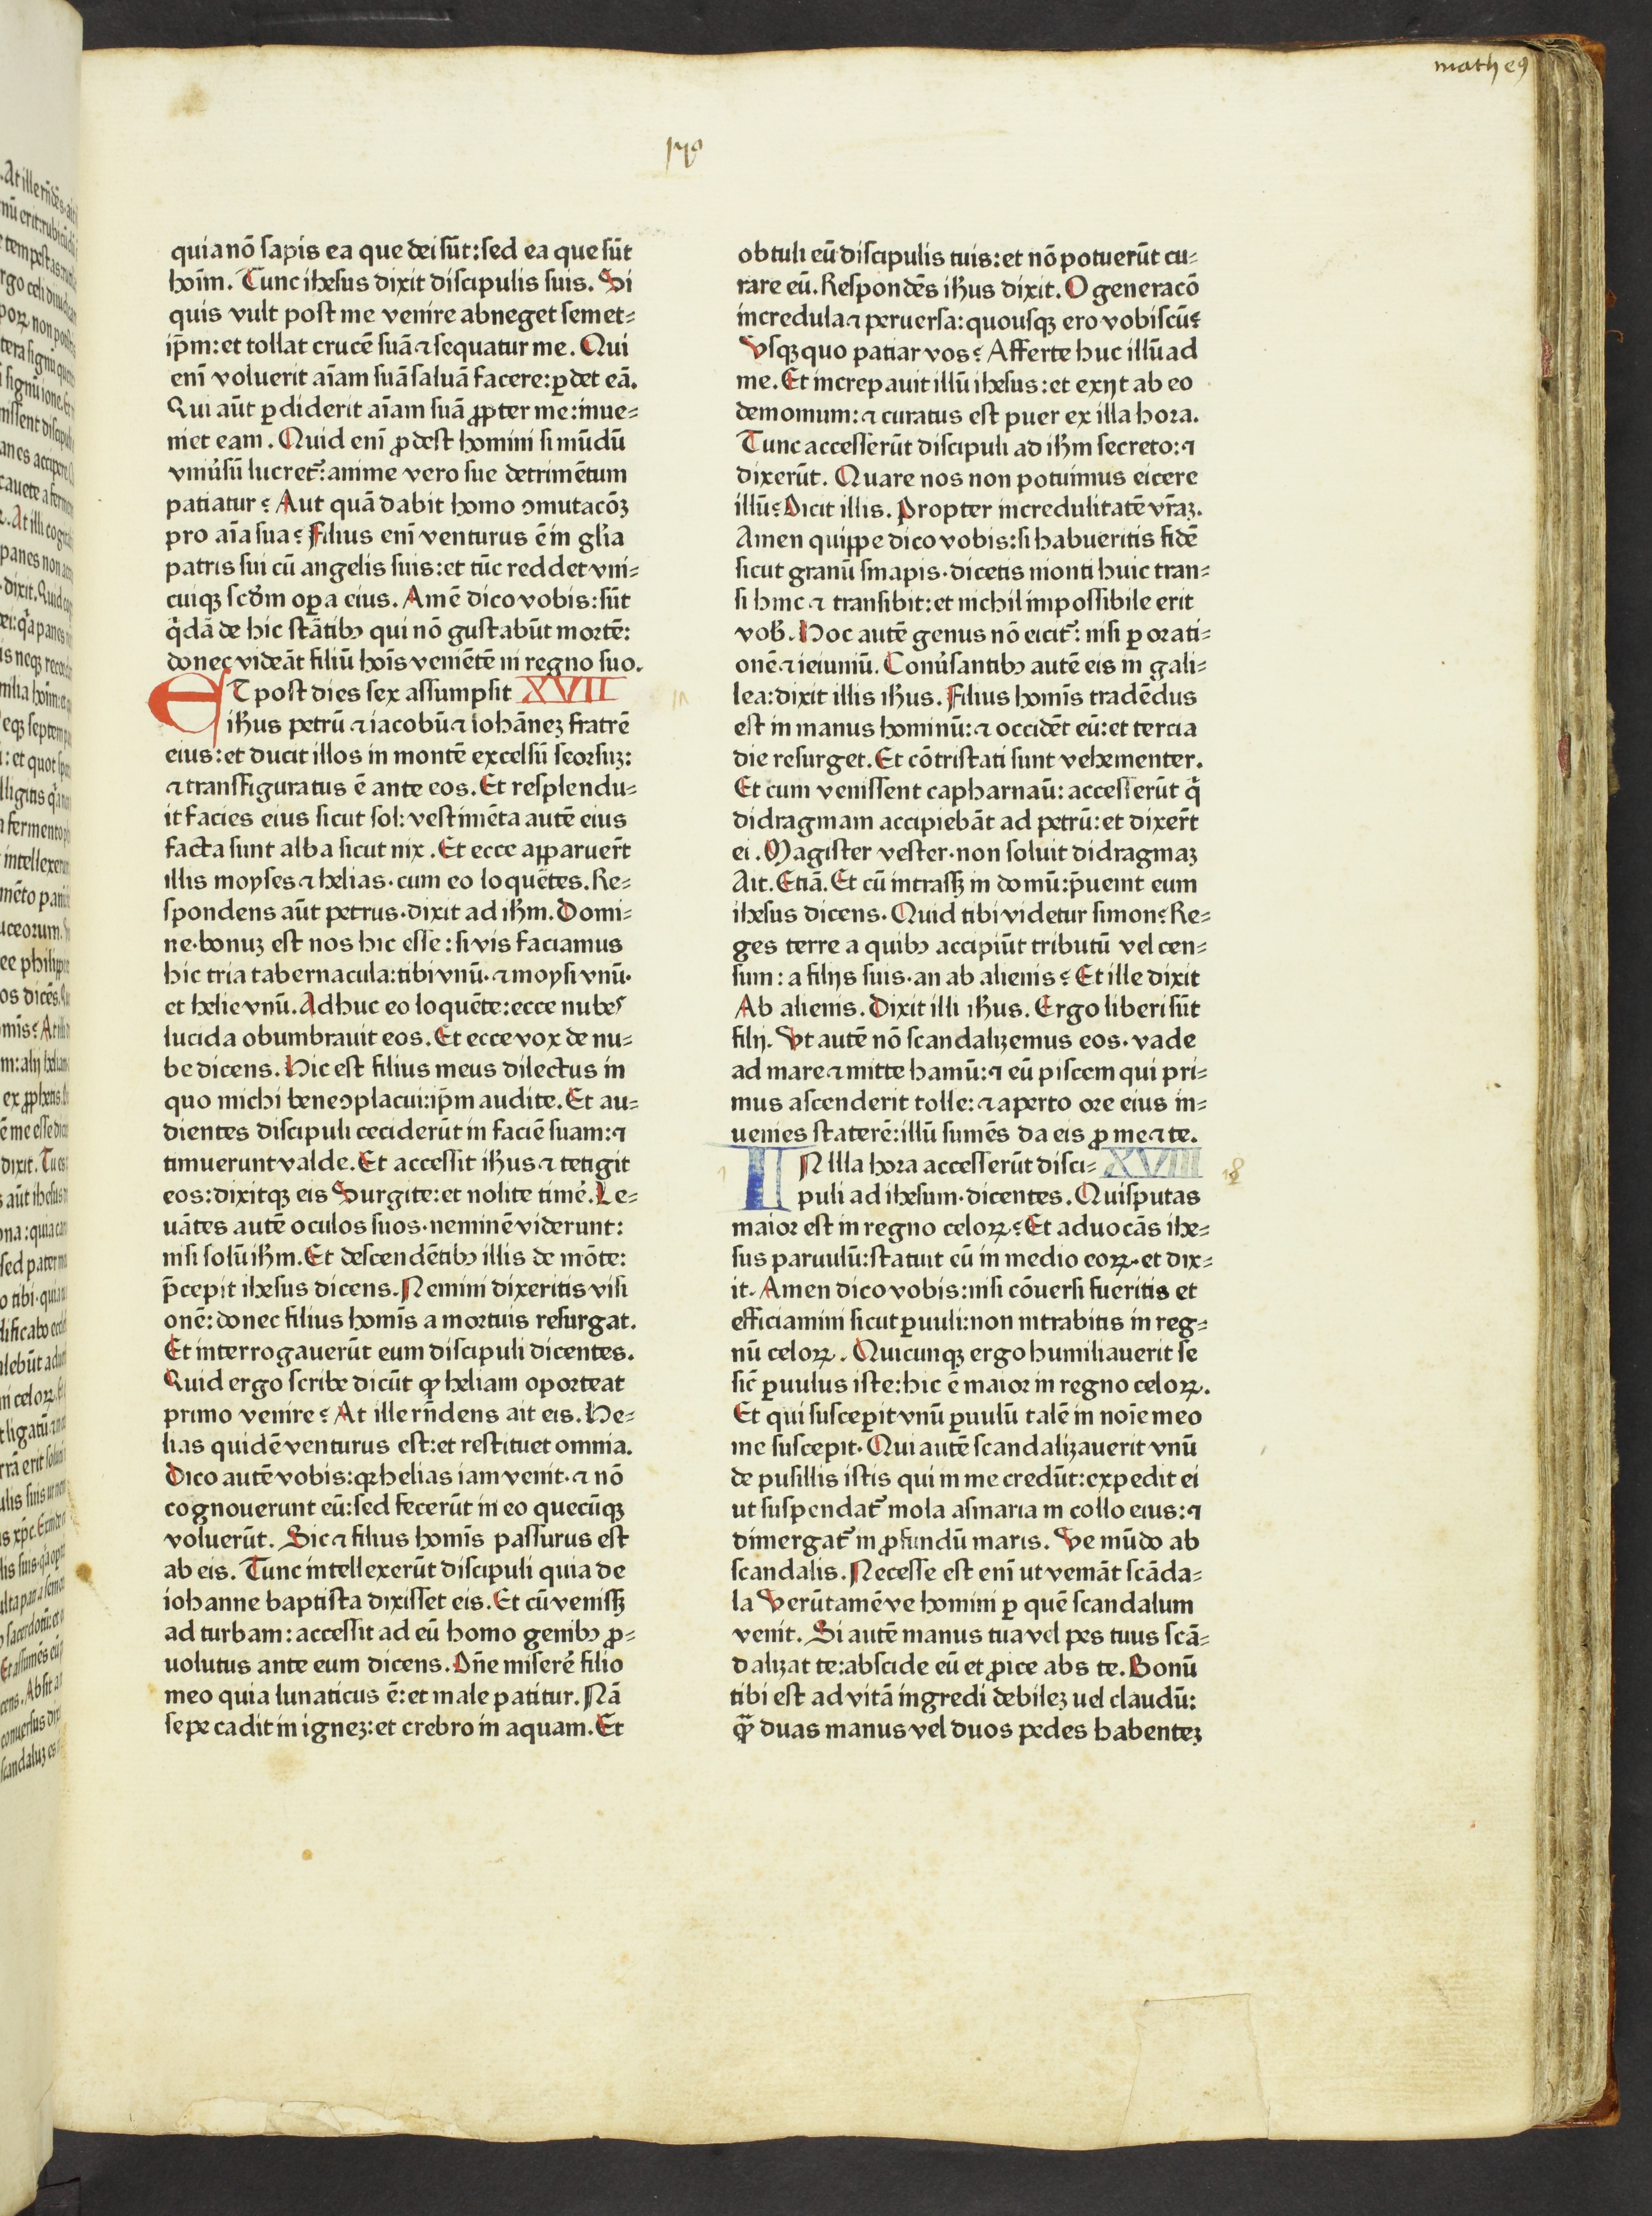 matheꝯ
quia nō sapis ea que dei sūt: sed ea que sūt
hoim̄. Tunc ihesus dixit discipulis suis. Si
quis vult post me venire abneget semet⸗
ip̄m: et tollat crucē suā ⁊ sequatur me. Qui
eni voluerit aīam suā saluā facere: ꝑdet eā.
Qui aūt ꝑdiderit aīam suā ꝓpter me: inue⸗
niet eam. Quid eni ꝓdest homini si mūdū
vniu̾sū lucret᷑: anime vero sue detrimētum
patiatur? Aut quā dabit homo ↄmutacōꝫ
pro aīa sua? Filius eni venturus ē in gl̾ia
patris sui cū angelis suis: et tūc reddet vni⸗
cuiqꝫ scd̾m oꝑa eius. Amē dico vobis: sūt
q̇dā de hic stātibꝯ qui nō gustabūt mortē:
donec videāt filiū hoīs veniētē in regno suo.
ET post dies sex assumpsit XVII
ih̄us petrū ⁊ iacobū ⁊ iohāneꝫ fratrē
eius: et ducit illos in montē excelsū seorsuꝫ:
⁊ transfiguratus ē ante eos. Et resplendu⸗
it facies eius sicut sol: vestimēta autē eius
facta sunt alba sicut nix. Et ecce apparuer̄t
illis moyses ⁊ helias· cum eo loquētes. Re⸗
spondens aūt petrus· dixit ad ih̄m. Domi⸗
ne· bonuꝫ est nos hic esse: si vis faciamus
hic tria tabernacula: tibi vnū· ⁊ moysi vnū·
et helie vnū. Adhuc eo loquēte: ecce nubes
lucida obumbrauit eos. Et ecce vox de nu⸗
be dicens. Hic est filius meus dilectus in
quo michi bene ↄplacui: ip̄m audite. Et au⸗
dientes discipuli ceciderūt in faciē suam: ⁊
timuerunt valde. Et accessit ih̄us ⁊ tetigit
eos: dixitqꝫ eis Surgite: et nolite time̾. Le⸗
uātes autē oculos suos· neminē viderunt:
nisi solū ih̄m. Et descendētibꝯ illis de mōte:
p̄cepit ihesus dicens. Nemini dixeritis visi
onē: donec filius homīs a mortuis resurgat.
Et interrogauerūt eum discipuli dicentes.
Quid ergo scribe dicūt ꝙ heliam oporteat
primo venire? At ille rn̄dens ait eis. He⸗
lias quidē venturus est: et restituet omnia.
Dico autē vobis: qꝛ helias iam venit· ⁊ nō
cognouerunt eū: sed fecerūt in eo quecūqꝫ
voluerūt. Sic ⁊ filius homīs passurus est
ab eis. Tunc intellexerūt discipuli quia de
iohanne baptista dixisset eis. Et cū venissꝫ
ad turbam: accessit ad eū homo genibꝯ ꝓ⸗
uolutus ante eum dicens. Dn̄e misere̾ filio
meo quia lunaticus ē: et male patitur. Nā
sepe cadit in igneꝫ: et crebro in aquam. Et
obtuli eū discipulis tuis: et nō potuerūt cu⸗
rare eū. Respondēs ih̄us dixit. O generacō
incredula ⁊ peruersa: quousqꝫ ero vobiscū?
Vsqꝫ quo patiar vos? Afferte huc illū ad
me. Et increpauit illū ihesus: et exijt ab eo
demonium: ⁊ curatus est puer ex illa hora.
Tunc accesserūt discipuli ad ih̄m secreto: ⁊
dixerūt. Quare nos non potuimus eicere
illū? Dicit illis. Propter incredulitatē vr̄aꝫ.
Amen quippe dico vobis: si habueritis fidē
sicut granū sinapis· dicetis monti huic tran⸗
si hinc ⁊ transibit: et nichil impossibile erit
vob̾. Hoc autē genus nō eicit᷑: nisi ꝑ orati⸗
onē ⁊ ieiuniū. Conu̾santibꝯ autē eis in gali⸗
lea: dixit illis ih̄us. Filius homīs tradēdus
est in manus hominū: ⁊ occidēt eū: et tercia
die resurget. Et cōtristati sunt vehementer.
Et cum venissent capharnaū: accesserūt q̇
didragmam accipiebāt ad petrū: et dixer̄t
ei. Magister vester· non soluit didragmaꝫ
Ait. Etiā. Et cū intrassꝫ in domū: p̄uenit eum
ihesus dicens. Quid tibi videtur simon? Re⸗
ges terre a quibꝯ accipiūt tributū vel cen⸗
sum: a filijs suis· an ab alienis? Et ille dixit
Ab alienis. Dixit illi ih̄us. Ergo liberi sūt
filij. Vt autē nō scandalizemus eos· vade
ad mare ⁊ mitte hamū: ⁊ eū piscem qui pri⸗
mus ascenderit tolle: ⁊ aperto ore eius in⸗
uenies staterē: illū sumēs da eis ꝓ me ⁊ te.
IN illa hora accesserūt disci⸗ XVIII
puli ad ihesum· dicentes. Quis putas
maior est in regno celoꝝ? Et aduocās ihe⸗
sus paruulū: statuit eū in medio eoꝝ· et dix⸗
it. Amen dico vobis: nisi cōuersi fueritis et
efficiamini sicut ꝑuuli: non intrabitis in reg⸗
nū celoꝝ. Quicunqꝫ ergo humiliauerit se
sic̄ ꝑuulus iste: hic ē maior in regno celoꝝ.
Et qui susceperit vnū ꝑuulū talē in noīe meo
me suscepit. Qui autē scandalizauerit vnū
de pusillis istis qui in me credūt: expedit ei
ut suspendat᷑ mola asinaria in collo eius: ⁊
dimergat᷑ in ꝓfundū maris. Ve mūdo ab
scandalis. Necesse est eni ut veniāt scāda⸗
la Verūtamē ve homini ꝑ quē scandalum
venit. Si autē manus tua vel pes tuus scā⸗
dalizat te: abscide eū et ꝓice abs te. Bonū
tibi est ad vitā ingredi debileꝫ uel claudū:
qᷓꝫ duas manus vel duos pedes habenteꝫ